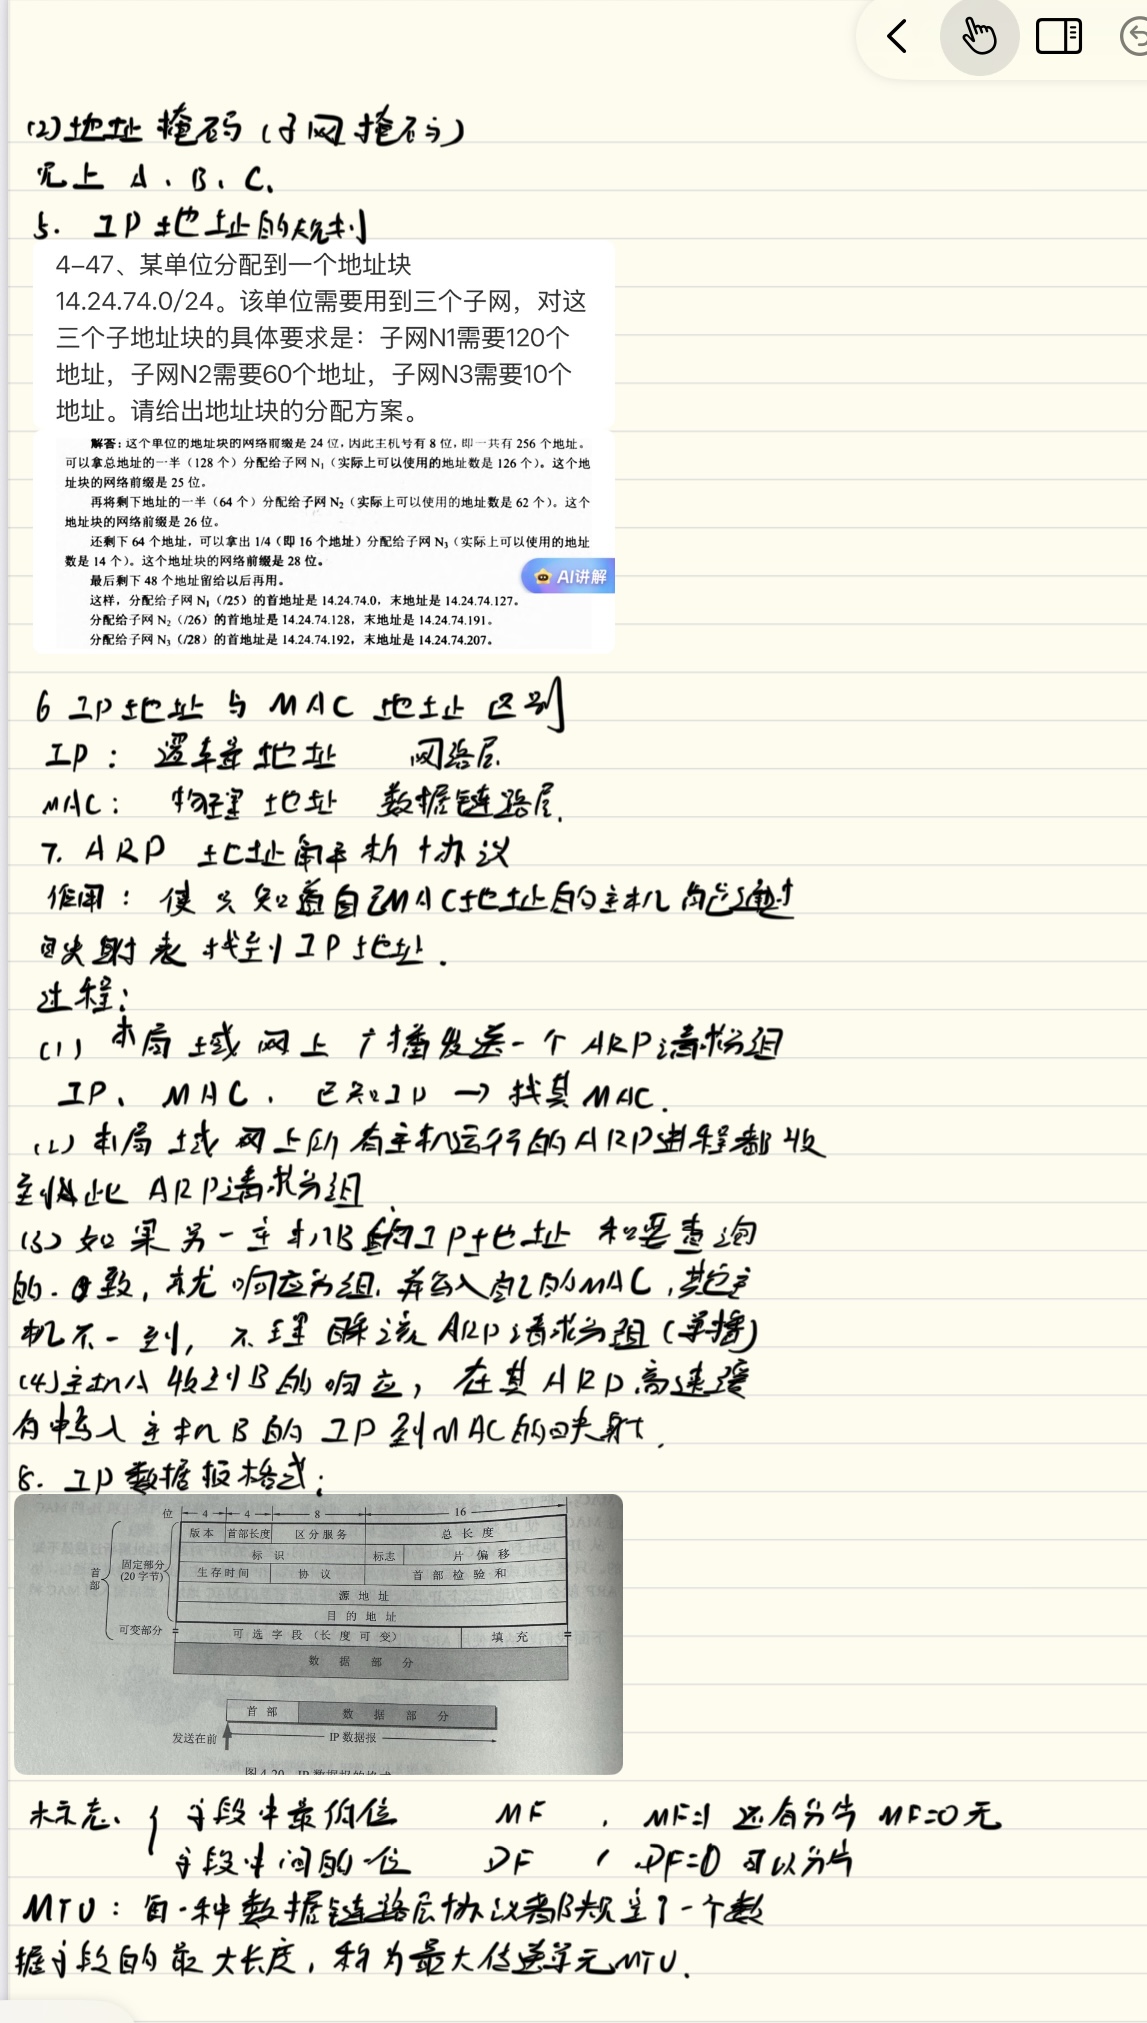 (2)地址掩码(子网掩码)
见上 A、B、C.
5. IP地址的规划
4-47、某单位分配到一个地址块
14.24.74.0/24。该单位需要用到三个子网，对这
三个子地址块的具体要求是：子网N1需要120个
地址，子网N2需要60个地址，子网N3需要10个
地址。请给出地址块的分配方案。
解答：这个单位的地址块的网络前缀是 24 位，因此主机号有 8 位，即一共有 256 个地址。
可以拿总地址的一半（128 个）分配给子网 N₁（实际上可以使用的地址数是 126 个）。这个地
址块的网络前缀是 25 位。
再将剩下地址的一半（64 个）分配给子网 N₂（实际上可以使用的地址数是 62 个）。这个
地址块的网络前缀是 26 位。
还剩下 64 个地址，可以拿出 1/4（即 16 个地址）分配给子网 N₃（实际上可以使用的地址
数是 14 个）。这个地址块的网络前缀是 28 位。
最后剩下 48 个地址留给以后再用。
AI讲解
这样，分配给子网 N₁（/25）的首地址是 14.24.74.0，末地址是 14.24.74.127。
分配给子网 N₂（/26）的首地址是 14.24.74.128，末地址是 14.24.74.191。
分配给子网 N₃（/28）的首地址是 14.24.74.192，末地址是 14.24.74.207。
6 IP地址与MAC地址区别
IP： 逻辑地址 网络层.
MAC： 物理地址 数据链路层.
7. ARP 地址解析协议
作用：使只知道自己MAC地址的主机能通过
映射表找到IP地址.
过程：
(1) 本局域网上广播发送一个ARP请求分组
IP、MAC、已知IP → 找其MAC.
(2) 本局域网上所有主机运行的ARP进程都收
到此ARP请求分组
(3) 如果另一主机B的IP地址和要查询
的一致，就响应分组，并写入自己的MAC，其它主
机不一致，不理睬该ARP请求分组(单播)
(4)主机A收到B的响应，在其ARP高速缓
存中写入主机B的IP到MAC的映射.
8. IP数据报格式：
位 4 4 8 16
版本 首部长度 区分服务 总长度
标识 标志 片偏移
首部 固定部分 (20 字节) 生存时间 协议 首部检验和
源地址
目的地址
可变部分 可选字段（长度可变） 填充
数据部分
首部 数据部分
发送在前 IP 数据报
图 4-20 IP 数据报的格式
标志、{ 字段中最低位 MF ， MF=1 还有分片 MF=0 无
字段中间的一位 DF ， DF=0 可以分片
MTU：每一种数据链路层协议都规定了一个数
据字段的最大长度，称为最大传送单元MTU.